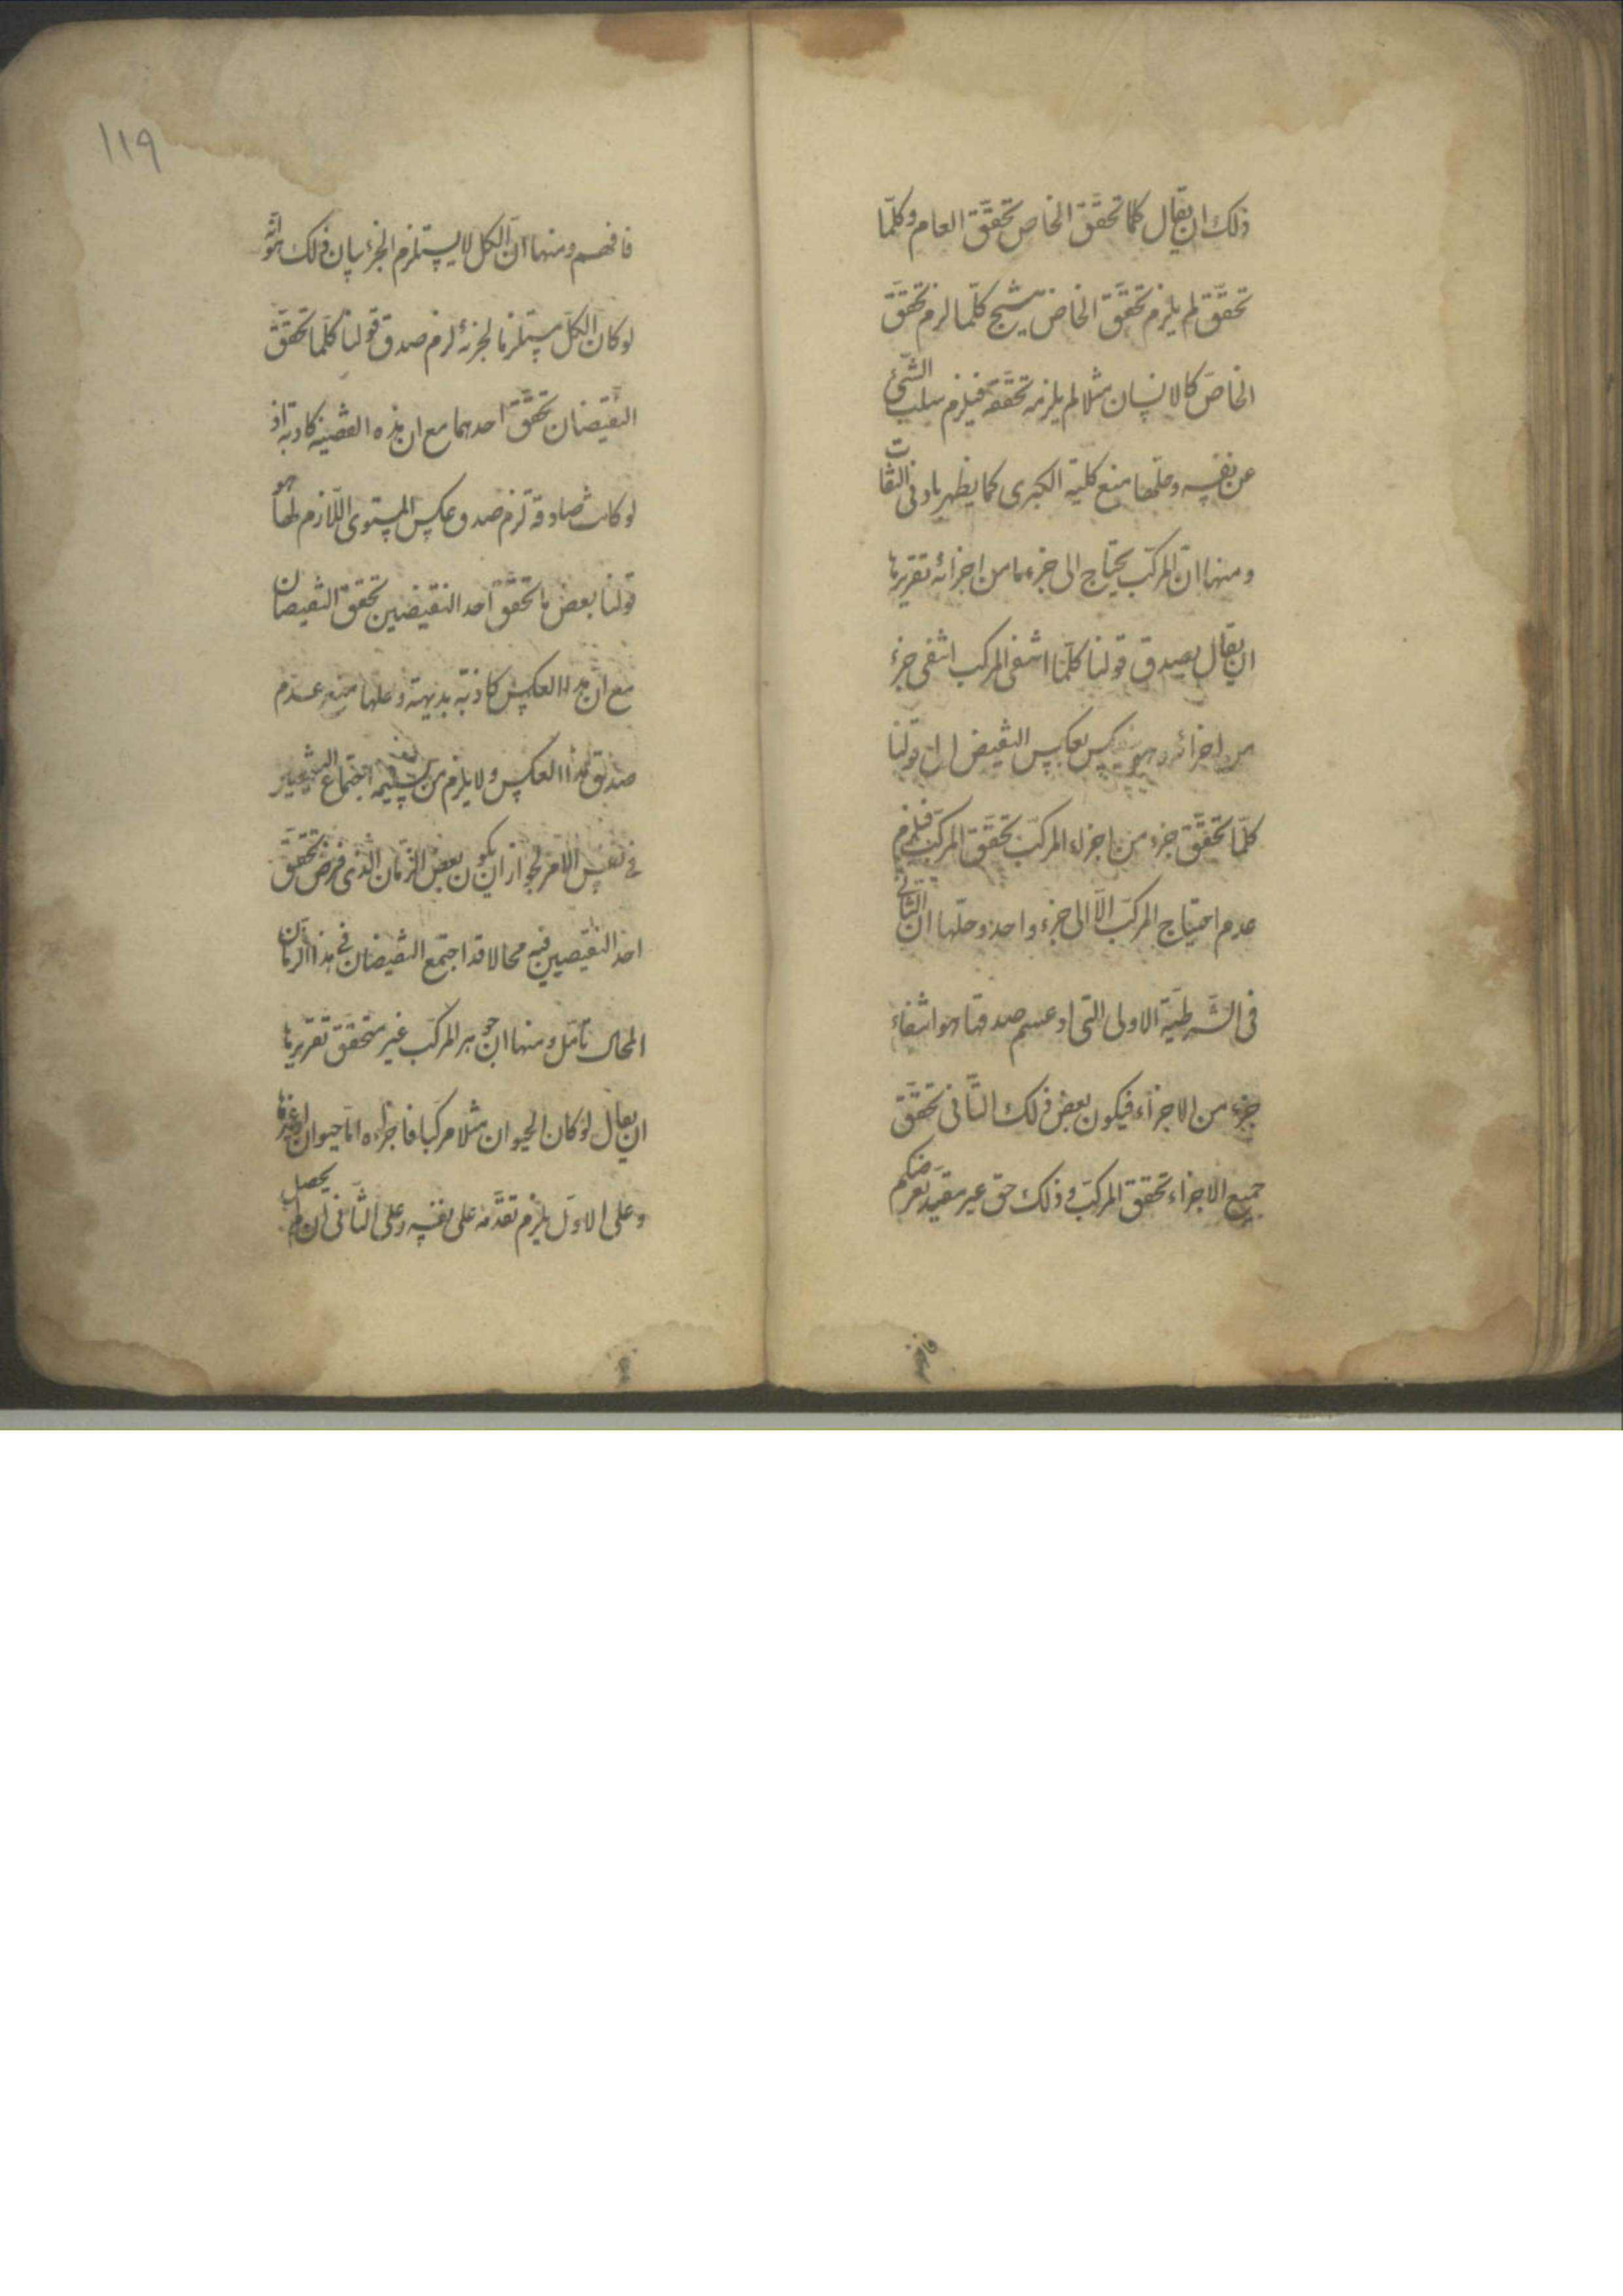 ذلك ان يقال كلما تحقّق الخاص تحقّق العام وكلّما
تحقّق لم يلزم تحقّق الخاص ينتج كلّما لزم تحقّق
الخاصّ كالانسان مثلا لم يلزمه تحققه فيلزم سلب الشّئ
عن نفسه وحلّها منع كلية الكبرى كما يظهر بادنى التفات
ومنها انّ المركّب يحتاج الى جزء ما من اجزائه تقريرها
ان يقال يصدق قولنا كلّما انتفى المركب انتفى جزء
من اجزائه وهو ينعكس بعكس النقيض الى قولنا
كلّما تحقّق جزء من اجزاء المركّب تحقّق المركّب فيلزم
عدم احتياج المركّب الّا الى جزء واحد وحلّها انّ الثانى
فى الشّرطيّة الاولى التى ادعيتم صدقها هو انتفاء
جزء من الاجزاء فيكون بعض ذلك الثّانى تحقّق
جميع الاجزاء تحقق المركّب وذلك حق غير مقيد لغرضكم
١١٩
فافهم ومنها انّ الكل لا يستلزم الجزء بيان ذلك هو انّه
لو كان الكلّ مستلزما لجزئه لزم صدق قولنا كلّما تحقّق
النّقيضان تحقّق احدهما مع ان هذه القضية كاذبة اذ
لو كانت صادقة لزم صدق عكس المستوى اللّازم لها هو
قولنا بعض ما تحقّق احد النقيضين تحقق النقيضان
مع ان هذا العكس كاذبة بديهة وحلها منع عدم
صدق هذا العكس ولا يلزم من تسليمه اجتماع النقيضين
فى نفس الامر لجواز ان يكون بعض الزّمان الذى فرض تحقّق
احد النقيضين فيه محالا قد اجتمع النقيضان فى هذا الزمان
المحال تأمّل ومنها ان جوهر المركّب غير متحقّق تقريرها
ان يقال لو كان الحيوان مثلا مركبا فاجزاءه امّا حيوان او غيرها
وعلى الاوّل يلزم تقدّمه على نفسه وعلى الثّانى ان لم يحصل